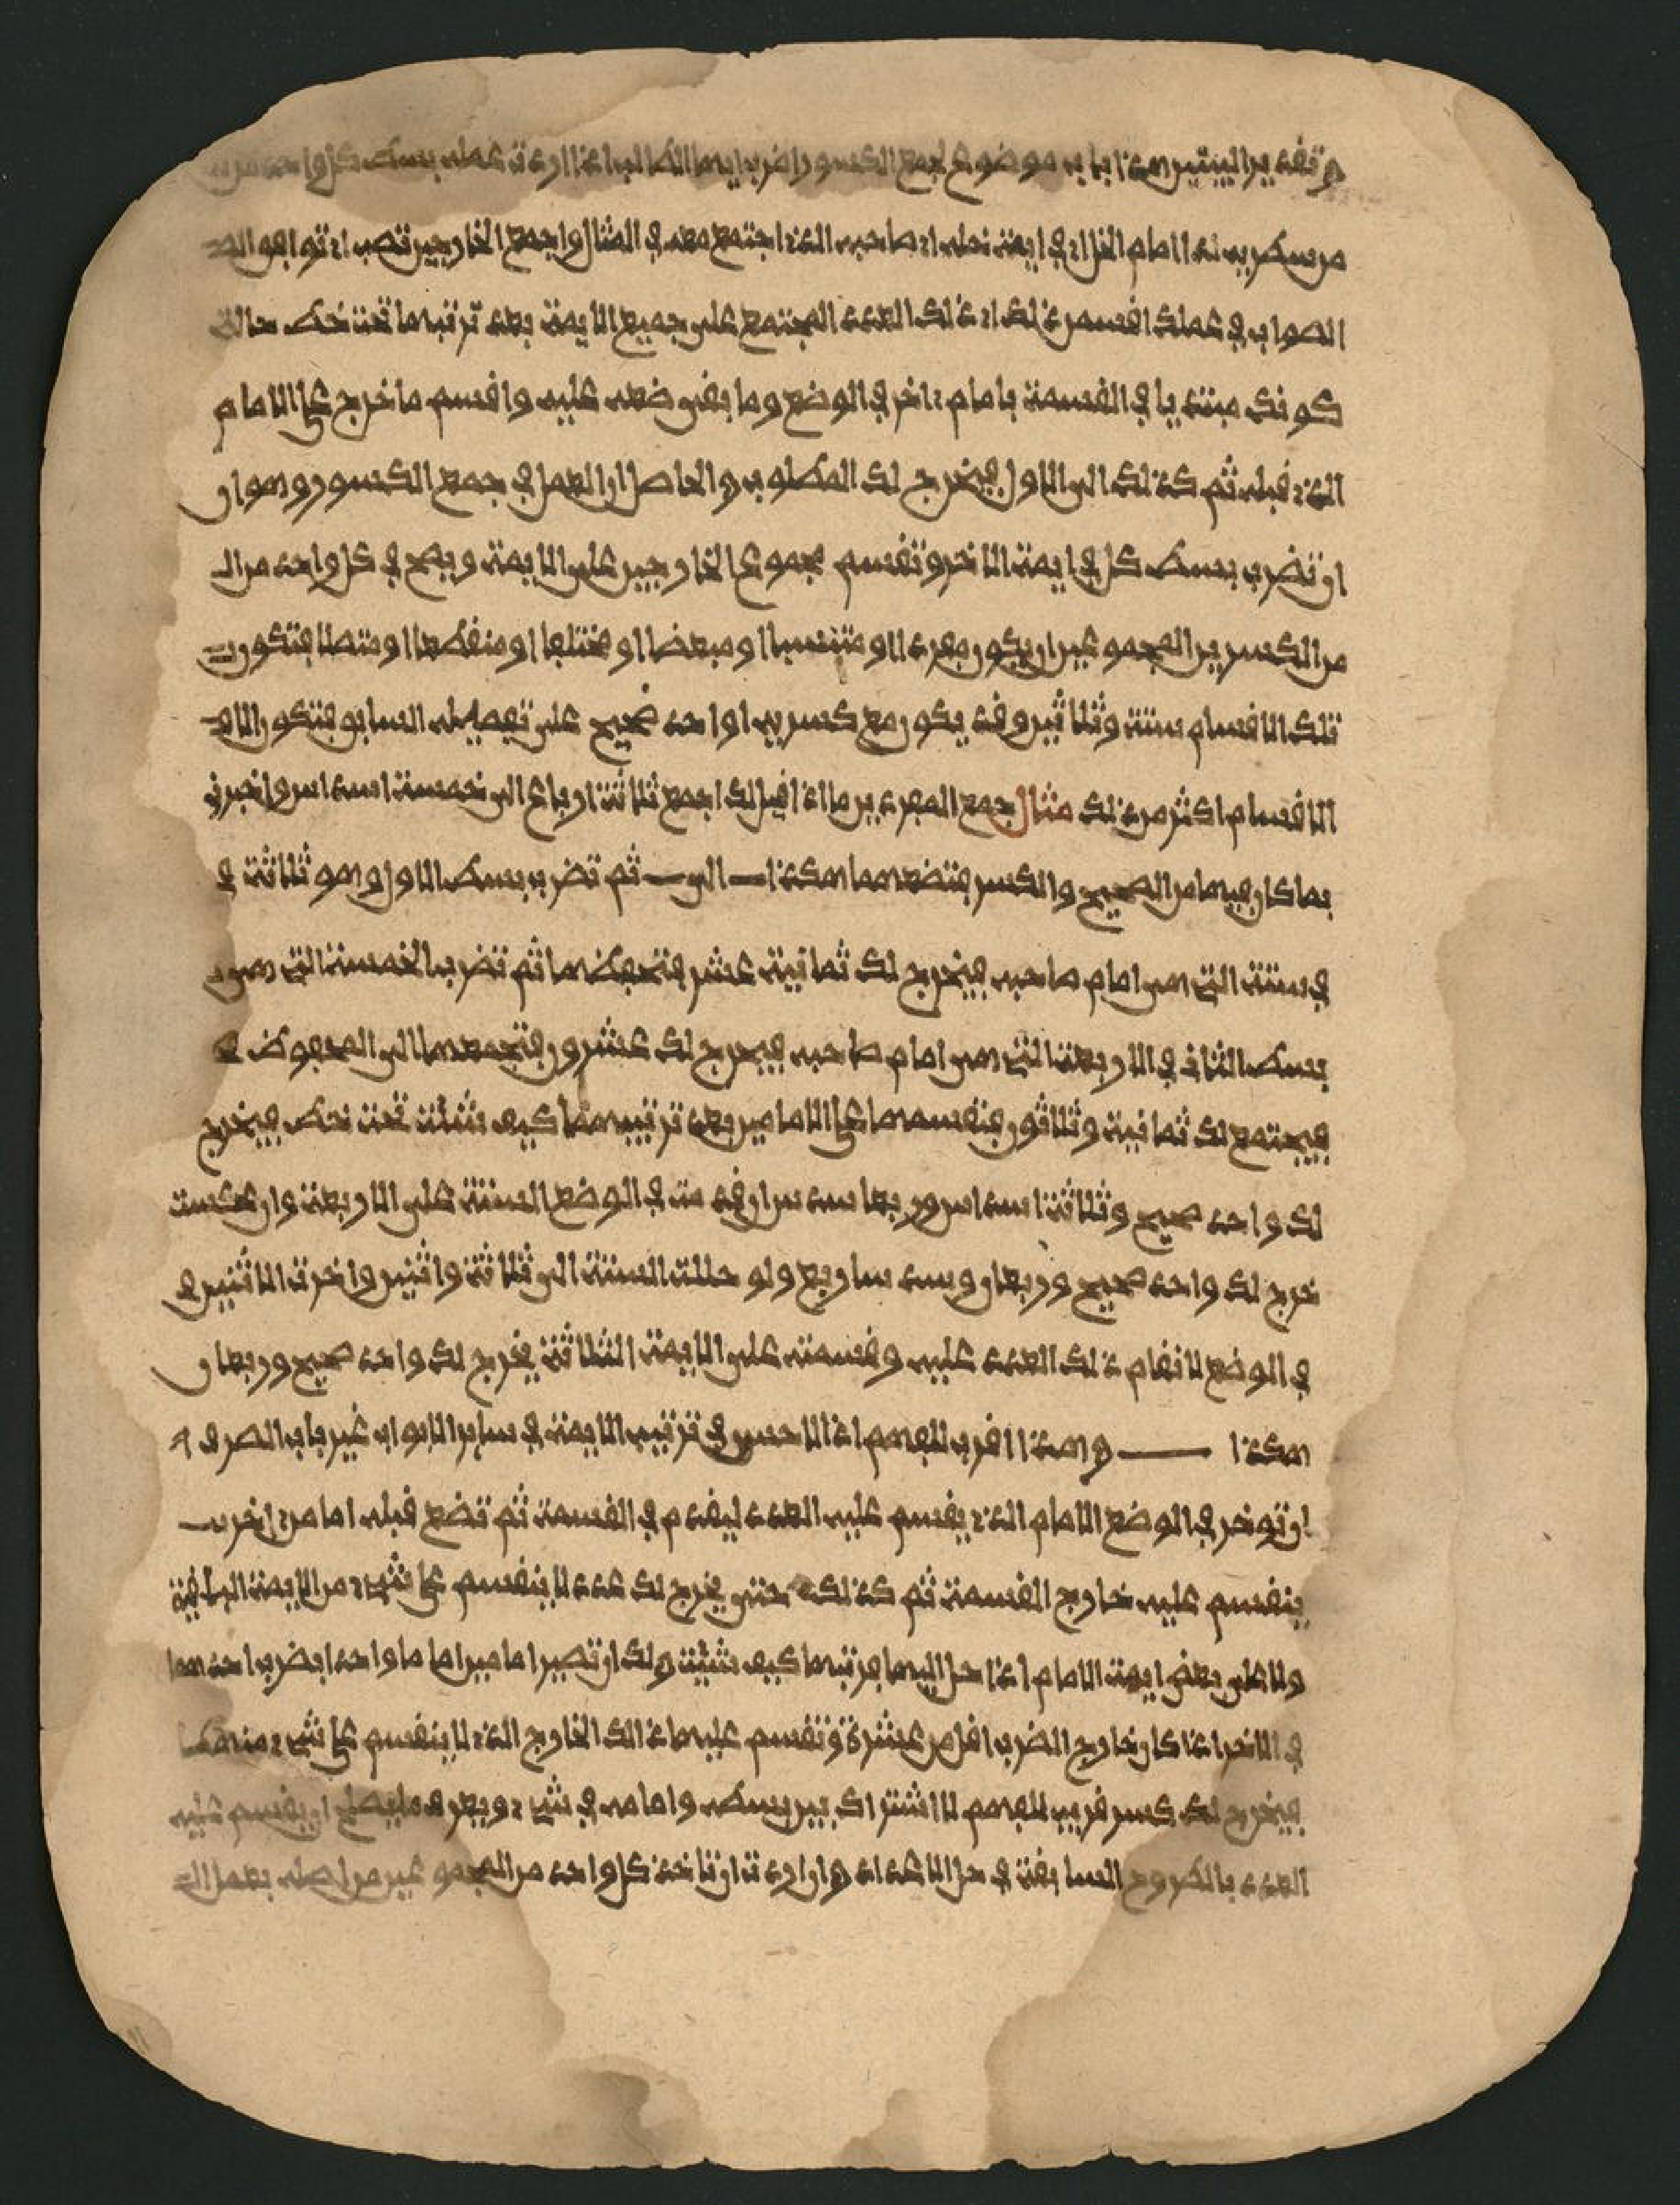 وتقدير البيتين هذا باب موضوع لجمع الكسور اضرب ايها الطالب اذا اردت عمله بسط كل واحد من
من سطريه لدا امام الخا اي في ايمة نحله اي صاحبه الذي اجتمع معه في المثال واجمع الخارجين تصب اي توافق
الصواب في عملك اقسمن ذلك اي ذلك العدد المجتمع على جميع الايمة بعد ترتبها تحت خط حالة
كونك مبتديا في القسمة بامام ءاخر في الوضع وما بقي ضعه عليه واقسم ما خرج على الامام
الذي قبله ثم كذلك الى الاول فيخرج لك المطلوب والحاصل ان العمل في جمع الكسور وهو ان
ان تضرب بسط كل في ايمة الاخر وتقسم مجموع الخارجين على الايمة ويصح في كل واحد من ال
من الكسرين المجموعين ان يكون مفردا او متنسبا او مبعضا او مختلفا او منقطعا او متصلا فتكون
تلك الاقسام ستة وثلاثين وقد يكون مع كسريه او احد صحيح على تفصيله السابق فتكون
الاقسام اكثر من ذلك مثال جمع المفردين ما اذا قيل لك اجمع ثلاثة ارباع الى خمسة اسداس واخبرني
بما كان فيهما من الصحيح والكسر فتضعهما هكذا الى ثم تضرب بسط الاول وهو ثلاثة في
في ستة التي هي امام صاحبه فيخرج لك ثمانية عشر فتحفظها ثم تضرب الخمسة التي هي
بسط الثاني في الاربعة التي هي امام صاحبه فيخرج لك عشرون فتجمعها الى المحفوظ
فيجتمع لك ثمانية وثلاثون فتقسمها على الامامين بعد ترتيبهما كيف شئت تحت خط فيخرج
لك واحد صحيح وثلاثة اسداس وربعا سدس ان قدمت في الوضع الستة على الاربعة وان عكست
خرج لك واحد صحيح وربعان وسدسا ربع ولو حللت الستة الى ثلاثة واثنين واخرت الاثنين
في الوضع لانقام ذلك العدد عليه وقسمته على الايمة الثلاثة يخرج لك واحد صحيح وربعان
هكذا وهذا اقرب للفهم اذ الاحسن في ترتيب الايمة في ساير الابواب غير باب الصرف
ان توخر في الوضع الامام الذي يقسم عليه العدد ليقدم في القسمة ثم تضع قبله اماما ءاخر
ينقسم عليه خارج القسمة ثم كذلك حتى يخرج لك عدد لا ينقسم على شيء من الايمة الباقية
ولا على بعض ايمة الامام اذا حل اليها فرتبها كيف شئت ولك ان تصير امامين اماما واحدا بضرب احدهما
في الاخر اذا كان خارج الضرب اقل من عشرة وتقسم عليها ذالك الخارج الذي لا ينقسم على شيء منهما
فيخرج لك كسر قريب للفهم لا اشتراك بين بسطه وامامه في شيء ويعرف ما يصلح ان يقسم عليه
العدد بالطروح السابقة في حل الاعداد وان اردت ان تاخذ كل واحد من المجموعين من اصله بعمل